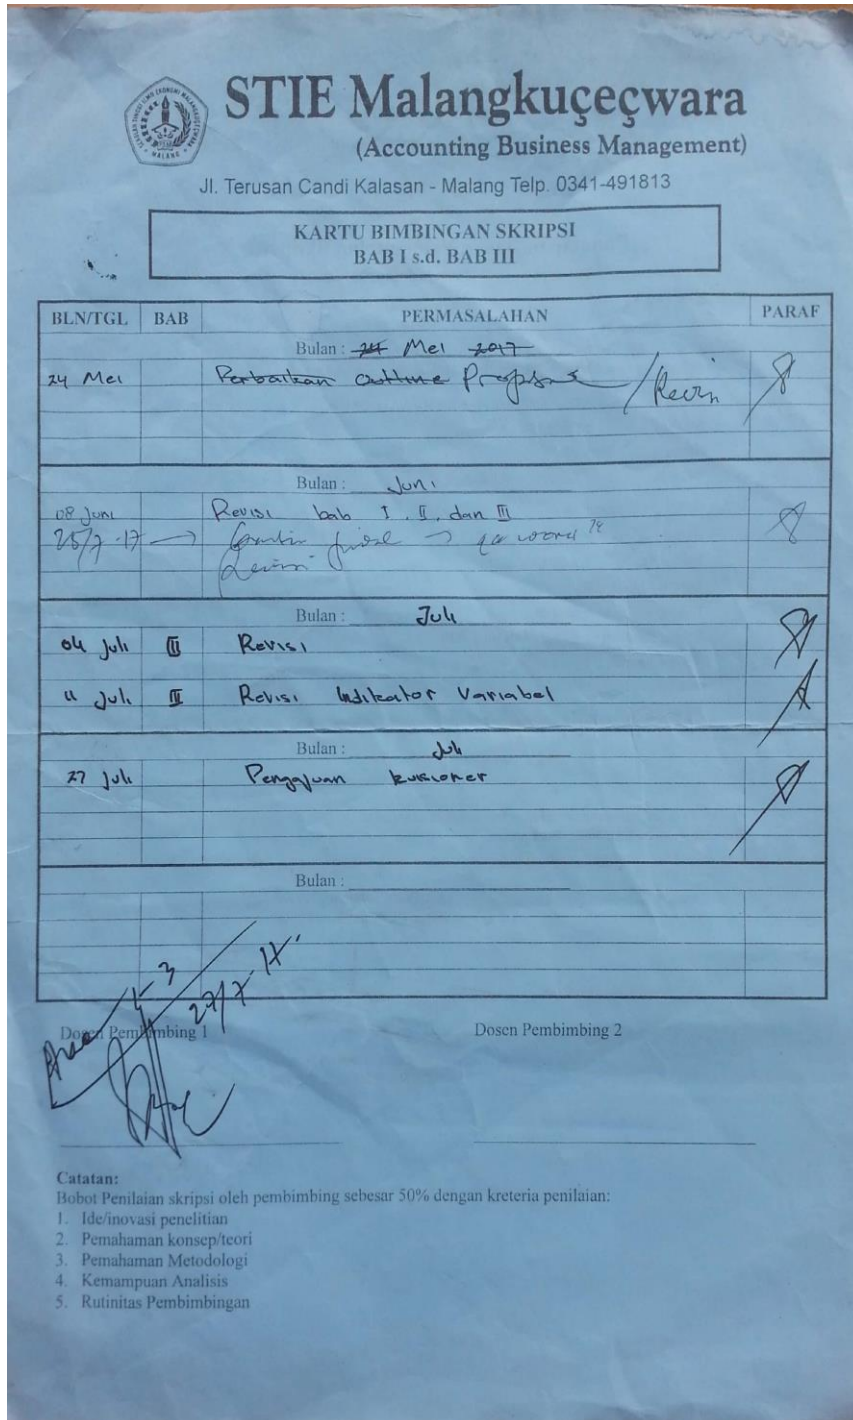 STIE Malangkuçeçwara
(Accounting Business Management)
Jl. Terusan Candi Kalasan - Malang Telp. 0341-491813
KARTU BIMBINGAN SKRIPSI
BAB I s.d. BAB III
BLN/TGL BAB PERMASALAHAN PARAF
Bulan : 24 Mei 2017
24 Mei Perbaikan outline Proposal
Bulan : Juni
08 Juni Revisi bab I, II, dan III
25/7-17
Bulan : Juli
04 Juli III Revisi
11 Juli III Revisi Indikator Variabel
Bulan : Juli
27 Juli Pengajuan kuisioner
Bulan :
27/7 17.
Dosen Pembimbing 1 Dosen Pembimbing 2
Catatan:
Bobot Penilaian skripsi oleh pembimbing sebesar 50% dengan kreteria penilaian:
1. Ide/inovasi penelitian
2. Pemahaman konsep/teori
3. Pemahaman Metodologi
4. Kemampuan Analisis
5. Rutinitas Pembimbingan